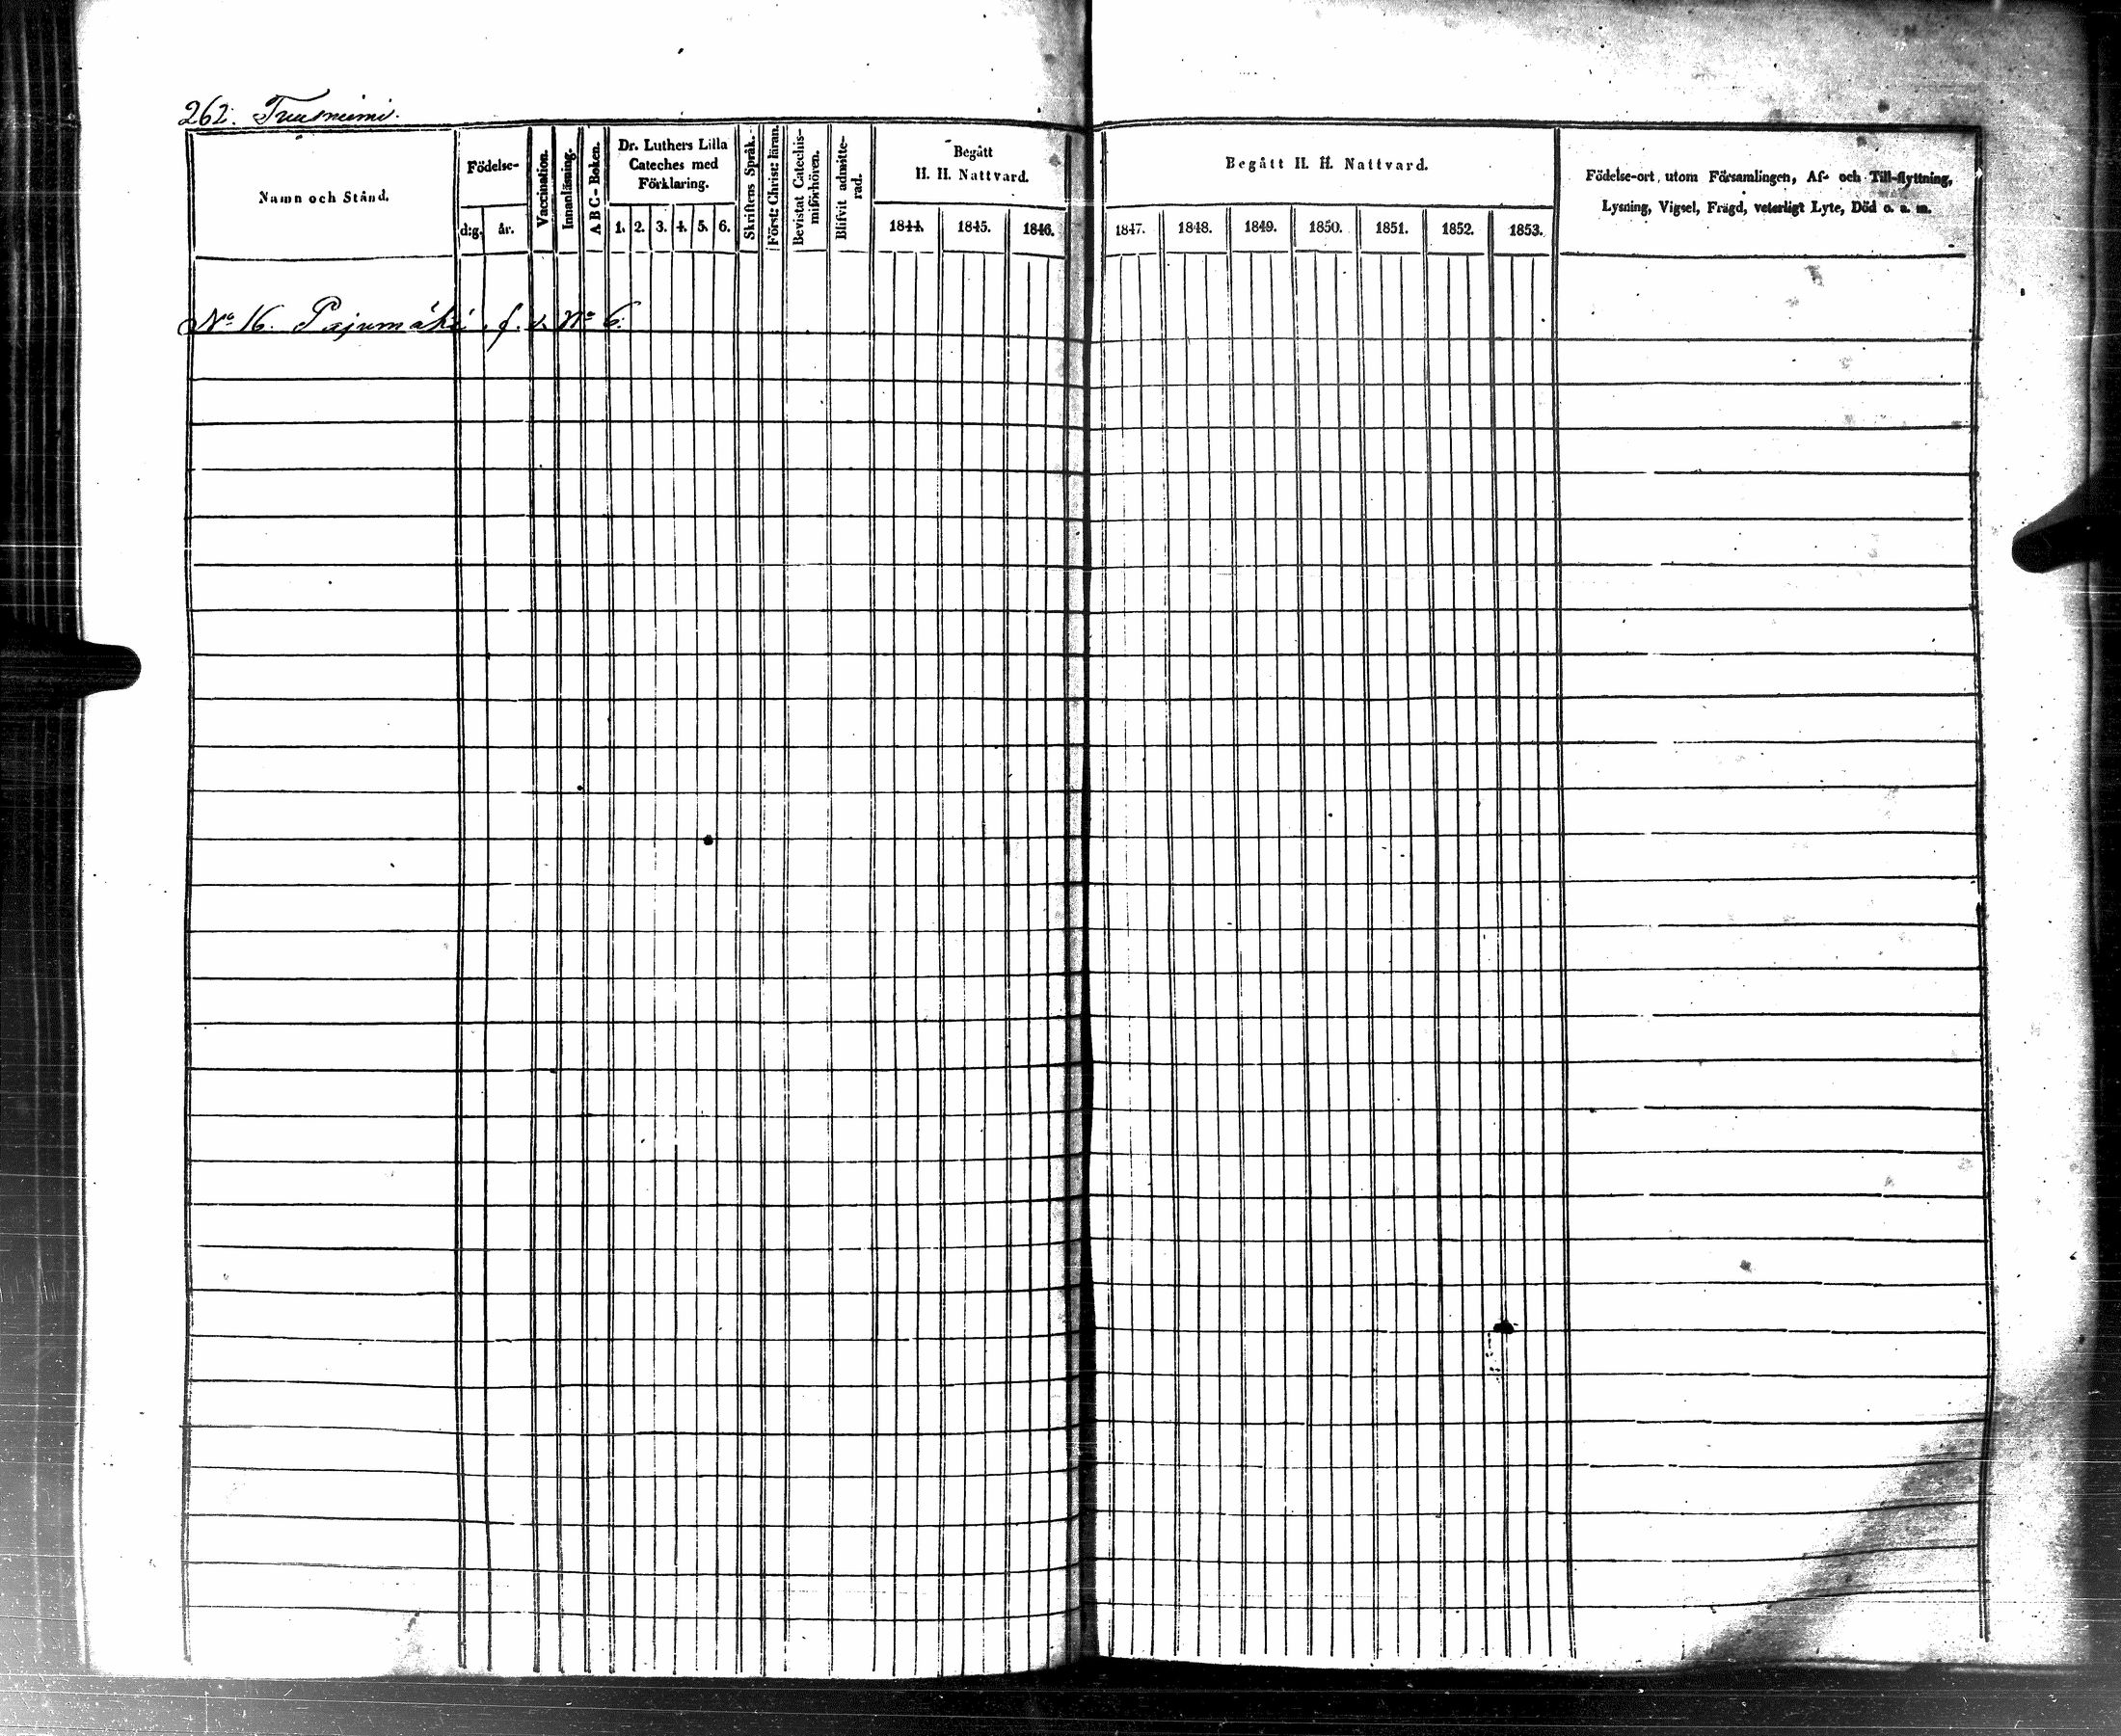 262. Tuusniemi.
Namn och Stånd.
Födelse-
d:g.
år.
Vaccination.
Innanläsning.
A B C.- Boken.
Dr. Luthers Lilla
Cateches med
Förklaring.
1. 2. 3. 4. 5. 6.
Skriftens Språk.
Först: Christ: läran.
Bevistat Catechis-
miförhören.
Blifvit admitte-
rad.
Begått
H. H. Nattvard.
1844. 1845. 1846.
Begått H. H. Nattvard.
1847. 1848. 1849. 1850. 1851. 1852. 1853.
Födelse-ort, utom Församlingen, Af- och Till-flyttning,
Lysning, Vigsel, Frägd, veterligt Lyte, Död o. s. m.
No 16. Pajumäki. f. d. No 6.